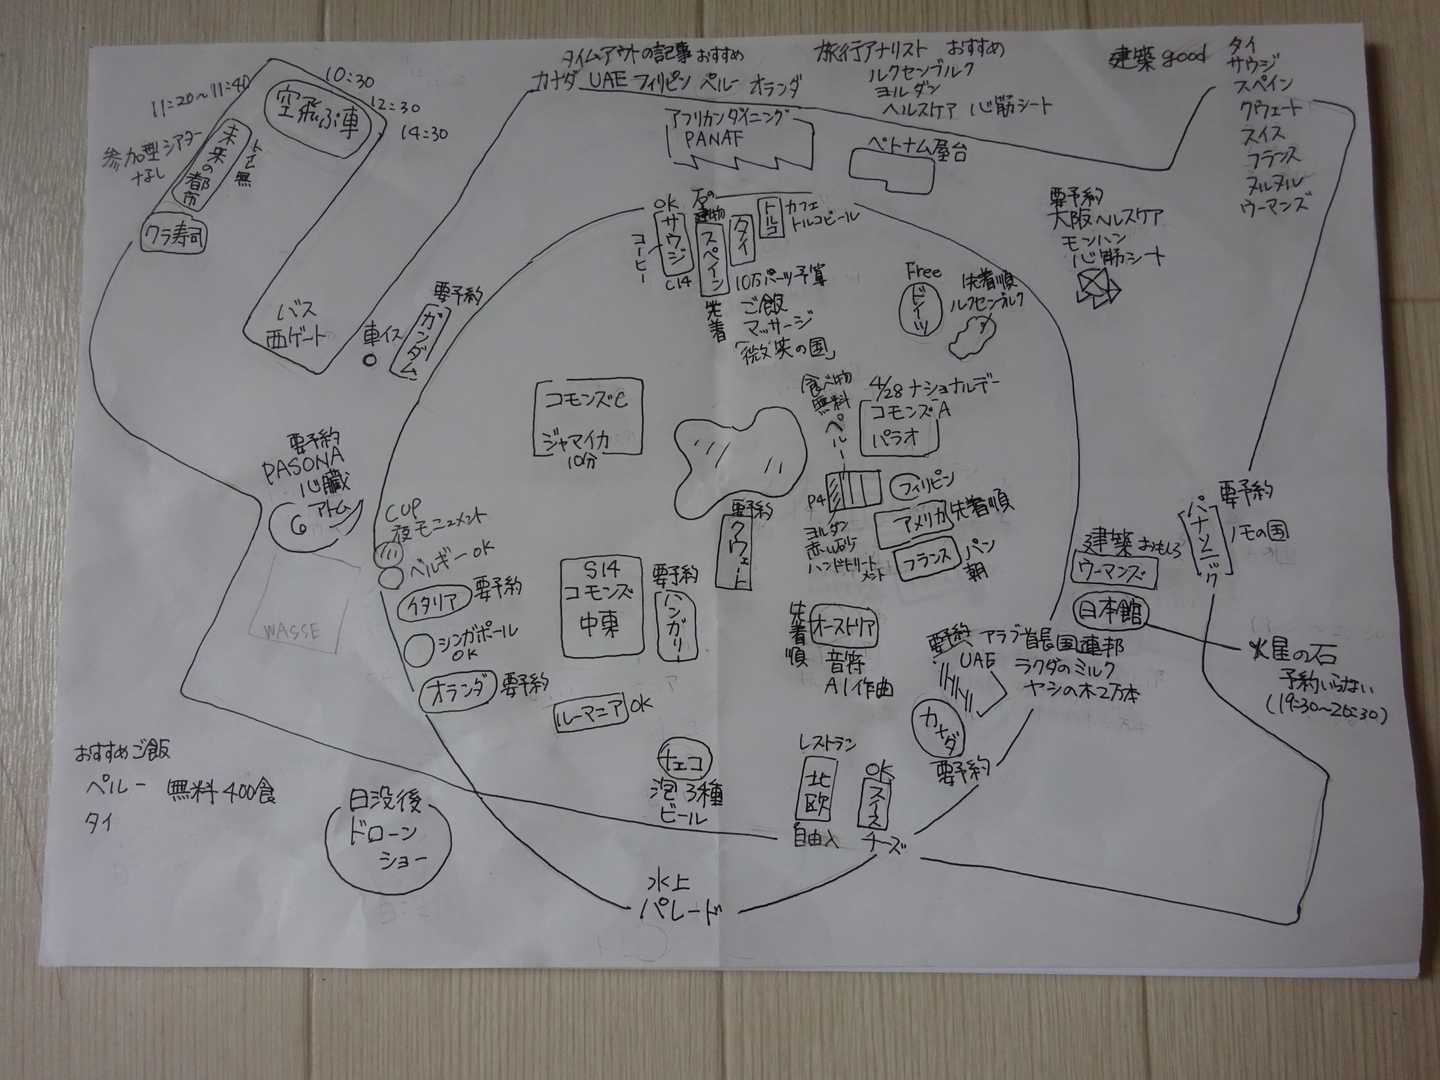 タイムアウトの記事おすすめ
カナダ UAE フィリピン ペルー オランダ
旅行アナリスト おすすめ
ルクセンブルク
ヨルダン
ヘルスケア 心筋シート
建築 good
タイ
サウジ
スペイン
クウェート
スイス
フランス
ヌルヌル
ウーマンズ
11:20~11:40
10:30
12:30
14:30
空飛ぶ車
未来の都市
トイレ無
参加型シアター
なし
クラ寿司
バス
西ゲート
車イス
要予約
ガンダム
アフリカンダイニング
PANAF
ベトナム屋台
OK
サウジ
コーヒー
C14
石の
建物
スペイン
先着
タイ
10万パーツ予算
ご飯
マッサージ
「微笑の国」
トルコ
カフェ
トルコビール
Free
ドイツ
先着順
ルクセンブルク
要予約
大阪ヘルスケア
モンハン
心筋シート
コモンズC
ジャマイカ
10分
食べ物
無料
ペルー
4/28 ナショナルデー
コモンズA
パラオ
P4
フィリピン
アメリカ
先着順
フランス
パン
朝
ヨルダン
赤い砂
ハンドトリート
メント
要予約
クウェート
要予約
PASONA
心臓
アトム
WASSE
CUP
夜モニュメント
ベルギーOK
イタリア 要予約
シンガポール
OK
オランダ 要予約
S14
コモンズ
中東
要予約
ハンガリー
ルーマニア OK
チェコ
泡 3種
ビール
先着順
オーストリア
音符
AI作曲
要予約
UAE
アラブ首長国連邦
ラクダのミルク
ヤシの木2万本
カナダ
要予約
レストラン
北欧
自由入
OK
スイス
チーズ
建築 おもしろ
ウーマンズ
日本館
パナソニック
要予約
ノモの国
火星の石
予約いらない
(19:30~20:30)
おすすめご飯
ペルー 無料 400食
タイ
日没後
ドローン
ショー
水上
パレード